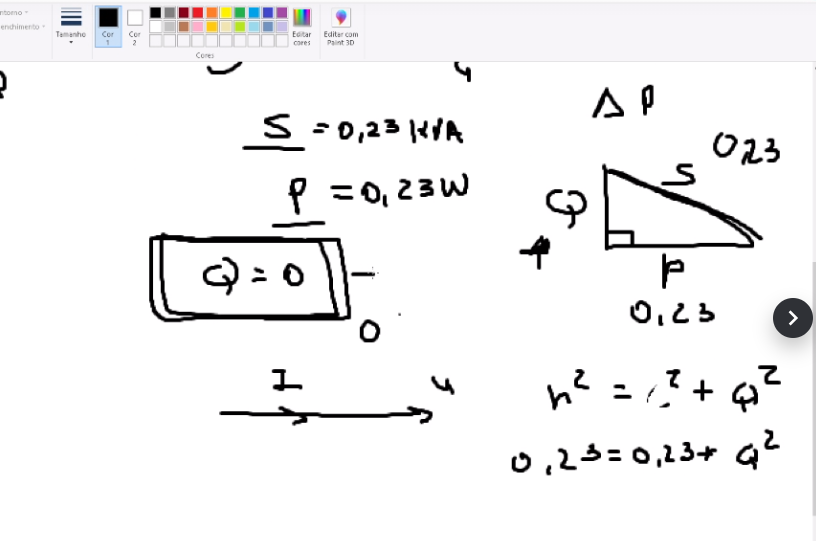 ntorno
enchimento
Tamanho
Cor
1
Cor
2
Editar
cores
Editar com
Paint 3D
Cores
S = 0,23 KVA
P = 0,23 W
Q = 0
0
I
u
Δ P
0,23
S
Q
P
0,23
h² = c² + Q²
0,23 = 0,23 + Q²